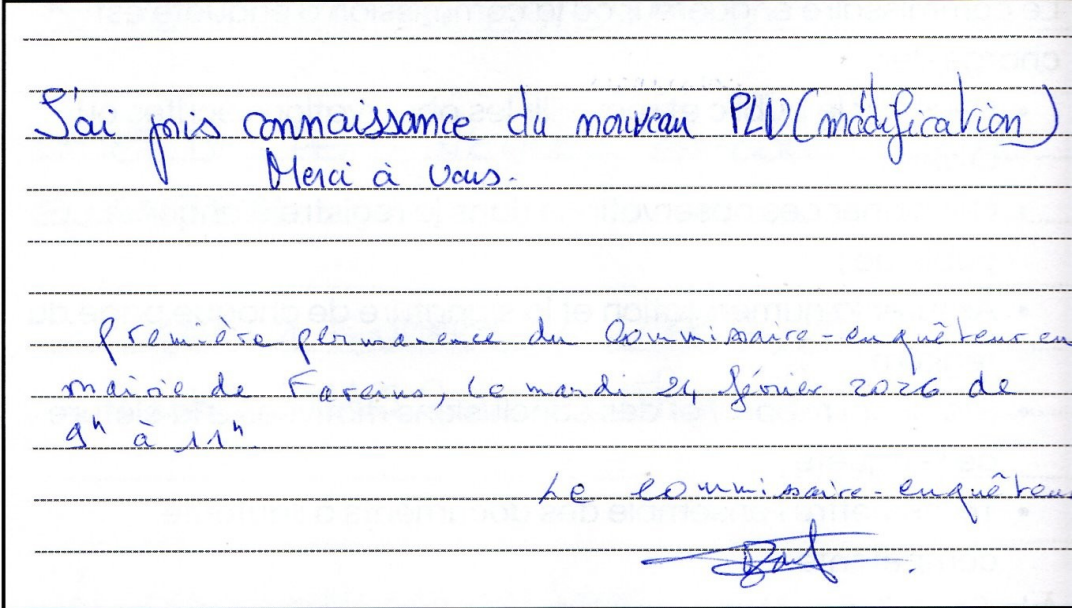 J'ai pris connaissance du nouveau PLU (modification)
Merci à vous.
Première permanence du Commissaire-enquêteur en
mairie de Fareins, le mardi 24 février 2026 de
9h à 11h
Le Commissaire-enquêteur